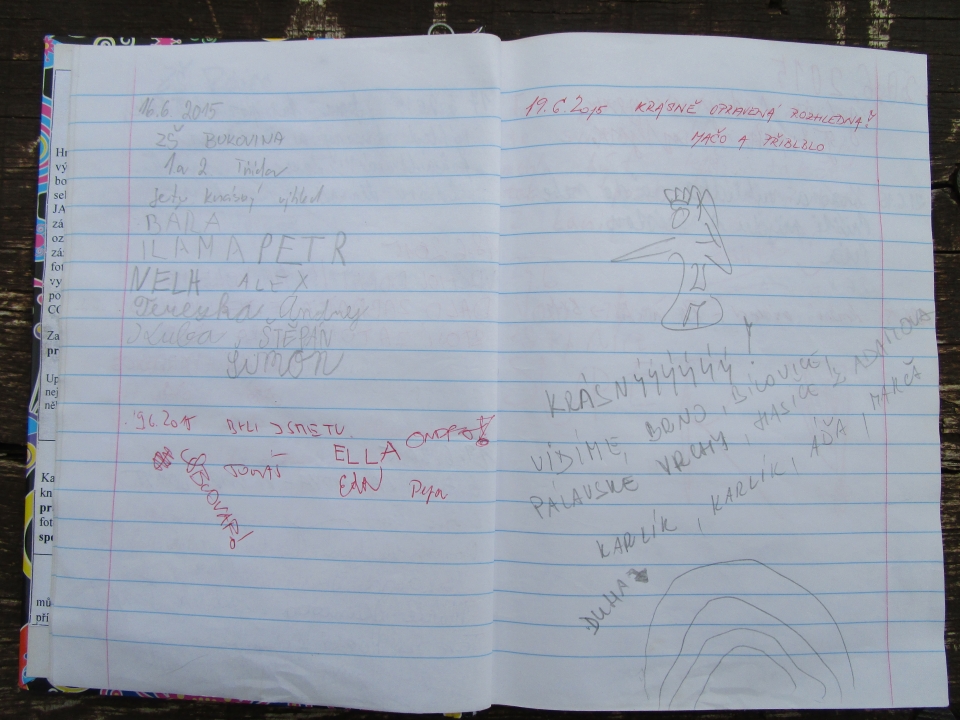 16.6. 2015
ZŠ BUKOVINA
1. a 2 Třída
Jestu krásný výhled
BÁRA
ILAMA PETR
NELA ALEX
Terezka Andrej
ŠTĚPÁN
ŠIMON
19.6.2015 BYLI JSME TU
JONÁŠ
ELLA
EDA
Pepa
19.6 2015 KRÁSNĚ OPRAVENÁ ROZHLEDNA!
MAČO A PŘIBLBLO
KRÁSNÝÝÝÝÝÝ!
VIDÍME, BRNO, BILOVICE,
PÁLAVSKÉ VRCHY, HASIČE Z ADAMOVA
KARLÍK, KARLÍK, AĎA, MARČA
DUHA
Hr
vý
bo
sel
JA
zá
oz
zá
fot
vy
po
CC
Za
pr
Up
nej
ně
Ka
kn
pro
fot
spe
mů
při